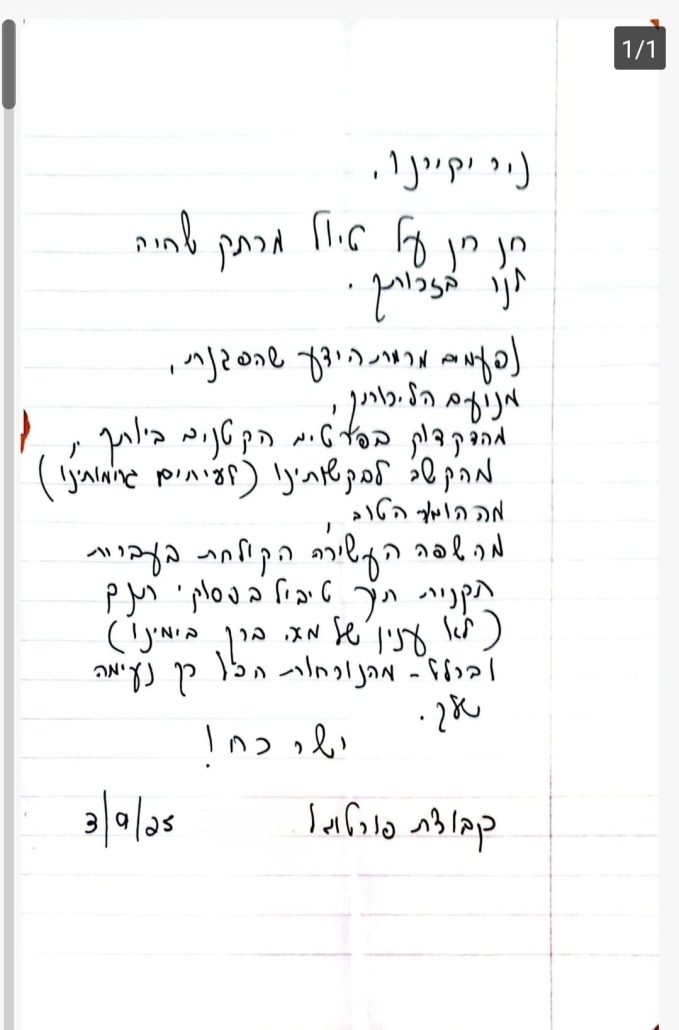 1/1
ניר יקירנו,
חן חן על טיול מרתק שהיה
לנו בזכותך.
נפעמים מרמת הידע שהפגנת,
מנועם הליכותיך,
מהדקדוק בפרטים הקטנים ביותר,
מהקשב לבקשותינו (לעיתים מוגזמות)
מההומור הטוב,
מהשפה העשירה הקולחת בעברית
תקנית תוך טיבול בפסוקי תנ"ך
(לא ענין של מה בכך בימינו)
ובכלל - מהנוכחות הכל כך נעימה
שלך.
ישר כח!
קבוצת פורטוגל 3/9/25